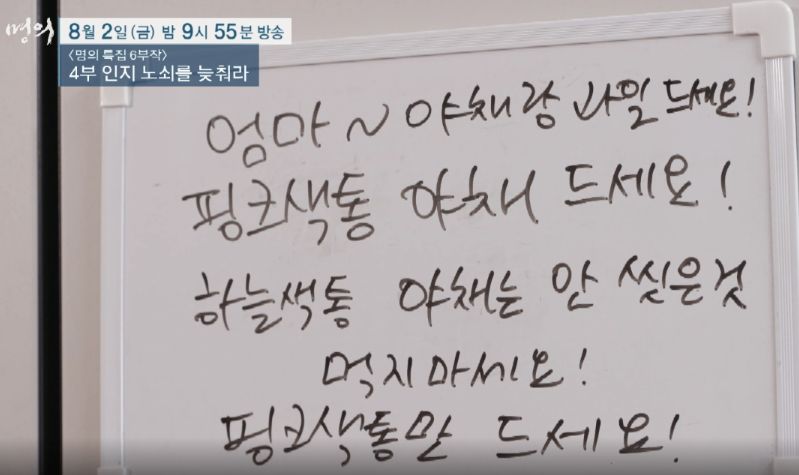 명의
8월 2일(금) 밤 9시 55분 방송
<명의 특집 6부작>
4부 인지 노쇠를 늦춰라
엄마~ 야채랑 과일 드세요!
핑크색통 야채 드세요!
하늘색통 야채는 안 씻은것
먹지마세요!
핑크색통만 드세요!